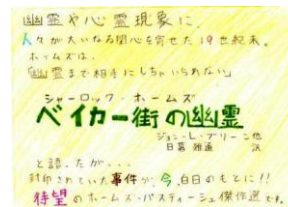 幽霊や心霊現象に、
人々が大いなる関心を寄せた19世紀末。
ホームズは、
「幽霊まで相手にしちゃいられない」
シャーロック・ホームズ
ベイカー街の幽霊
ジョン・L・ブリーン他
日暮雅通 訳
と語ったが・・・
封印されていた事件が、今、白日のもとに!!
待望のホームズ・パスティーシュ傑作選です。